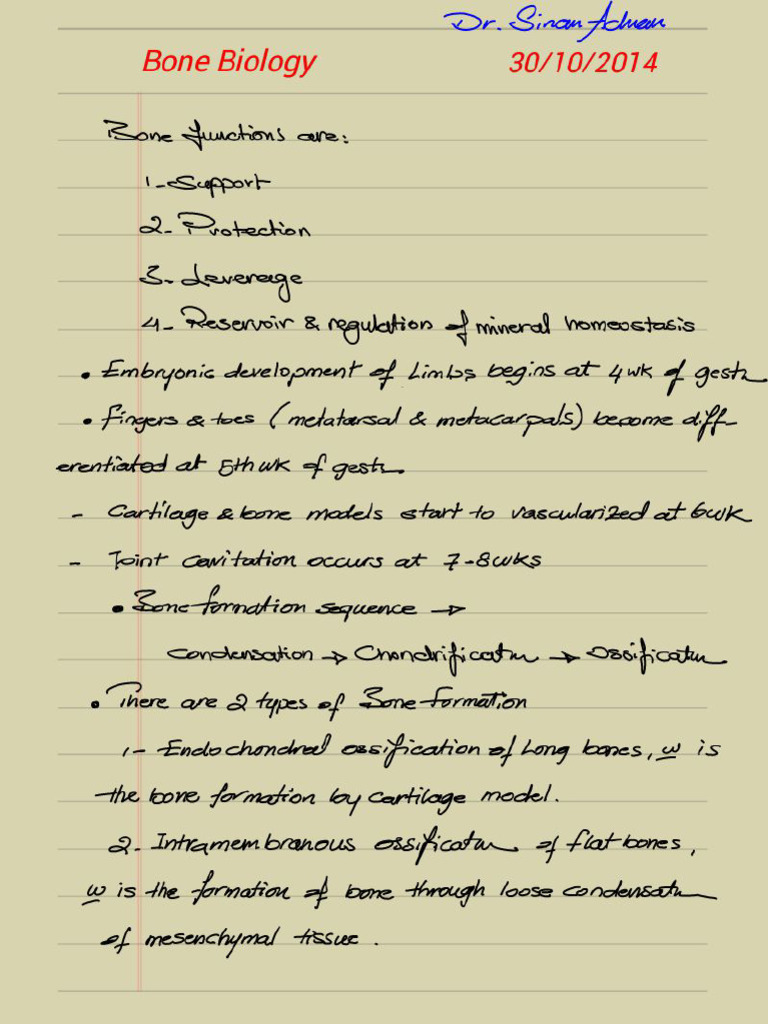 Dr. Sinan Adnan
Bone Biology 30/10/2014
Bone functions are:
1-Support
2- Protection
3- Leverage
4- Reservoir & regulation of mineral homeostasis
• Embryonic development of Limbs begins at 4wk of gestn
• Fingers & toes (metatarsal & metacarpals) become diff-
erentiated at 5th wk of gestn.
- Cartilage & bone models start to vascularized at 6wk
- Joint cavitation occurs at 7-8wks
• Bone formation sequence →
Condensation → Chondrificatn → Ossificatn.
• There are 2 types of Bone formation
1- Endochondral ossification of Long bones, w is
the bone formation by cartilage model.
2- Intramembranous ossificatn of flat bones,
w is the formation of bone through loose condensatn
of mesenchymal tissue.